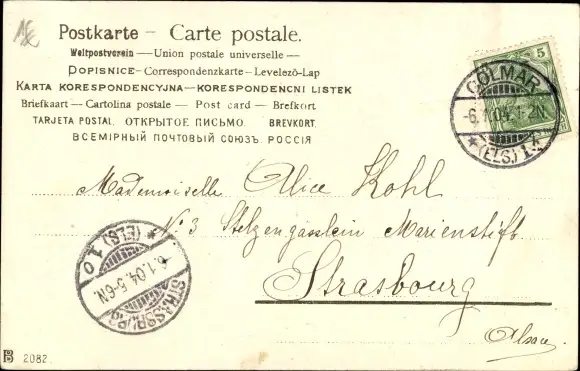 Postkarte – Carte postale.
Weltpostverein — Union postale universelle —
DOPISNICE – Correspondenzkarte – Levelező-Lap
KARTA KORESPONDENCYJNA – KORESPONDENCNI LISTEK
Briefkaart – Cartolina postale – Post card – Brefkort
TARJETA POSTAL. ОТКРЫТОЕ ПИСЬМО. BREVKORT.
ВСЕМІРНЫЙ ПОЧТОВЫЙ СОЮЗЪ. РОССІЯ
5
COLMAR
-6.1.04.1-2N.
* (ELS) 1
Mademoiselle Alice Kohl
No 3 Stelzengässlein Marienstift
Strasbourg
Alsace
STRASSBURG
6.1.04.5-6N.
* (ELS) 1
B 2082.